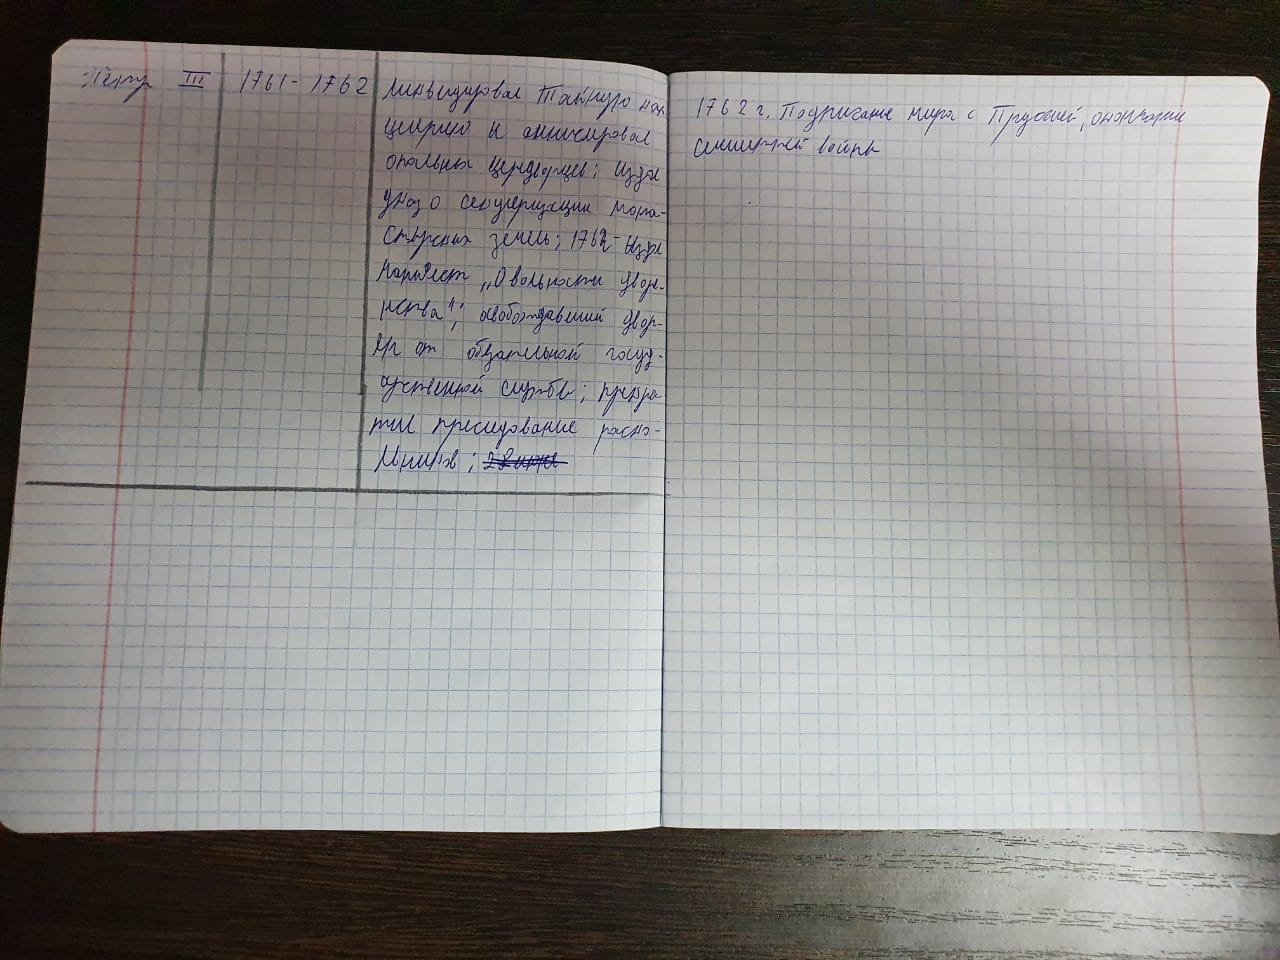 Пётр III 1761-1762 Ликвидировал Тайную кан
целярию и амнистировал
опальных царедворцев; издал
указ о секуляризации мона-
стырских земель; 1762- Издал
манифест „О вольности дворя-
нства", освобождавший двор-
ян от обязательной госуд-
арственной службы; прекра-
тил преследование раско-
льников;
1762 г. Подписание мира с Пруссией, окончание
семилетней войны